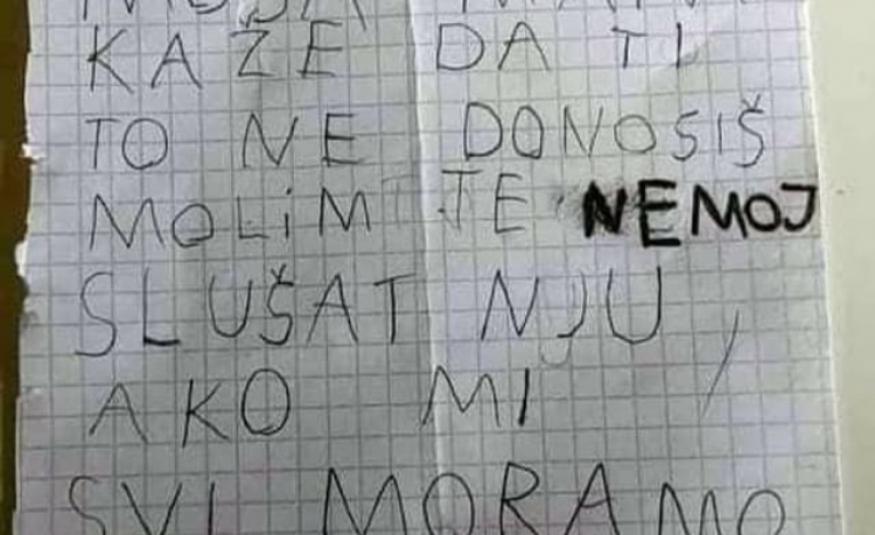 KAŽE DA TI
TO NE DONOSIŠ
MOLiM TE NEMOJ
SLUŠAT NJU,
AKO MI
SVI MORAMO